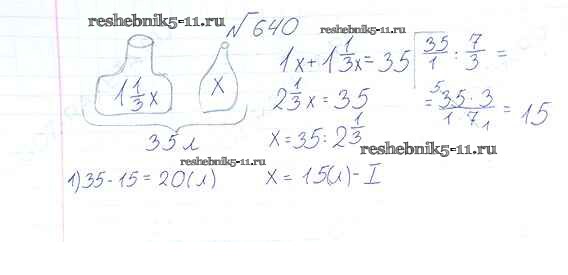 reshebnik5-11.ru
№640
1 1/3 x
x
35 л
1x + 1 1/3 x = 35
2 1/3 x = 35
x = 35 : 2 1/3
35/1 : 7/3 =
= 35·3/1·7 = 15
5
1
reshebnik5-11.ru
reshebnik5-11.ru
1) 35 - 15 = 20 (л)
x = 15 (л) - I